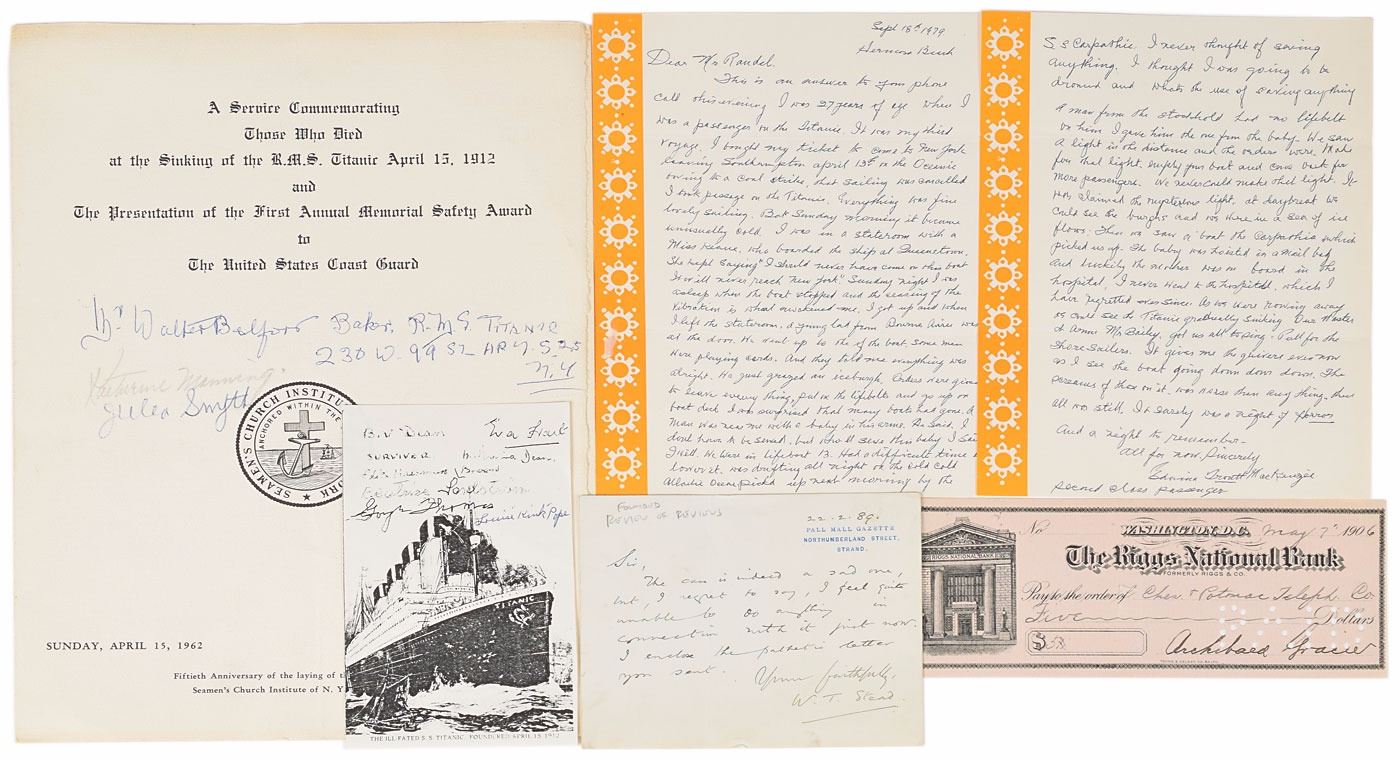 A Service Commemorating
Those Who Died
at the Sinking of the R.M.S. Titanic April 15, 1912
and
The Presentation of the First Annual Memorial Safety Award
to
The United States Coast Guard
Mr Walter Belford Baker R.M.S. TITANIC
230 W. 99 St. AP 7.
N.Y
Katherine Manning.
Julia Smyth
SEAMEN'S CHURCH INSTITUTE
ANCHORED WITHIN THE
YORK
SUNDAY, APRIL 15, 1962
Fiftieth Anniversary of the laying of t
Seamen's Church Institute of N. Y
B.V Dean Eva Hart
SURVIVER
Beatrice Sandstrom
George Thomas
Louise Kink Pope
TITANIC
THE ILL-FATED S. S. TITANIC. FOUNDERED APRIL 15 1912
Sept 18th 1979
Hermosa Beach
Dear Mr Randel.
This is an answer to your phone
call this evening I was 27 years of age when I
was a passenger on the Titanic. It was my third
voyage. I bought my ticket to come to New York
leaving Southampton april 13th on the Oceanic
owing to a coal strike, that sailing was cancelled
I took passage on the Titanic. Everything was fine
lovely sailing. But Sunday morning it became
unusually cold. I was in a stateroom with a
Miss Keane. who boarded the ship at Queenstown.
She kept saying "I should never have come on this boat
It will never reach New York" Sunday night I was
asleep when the boat stopped and the ceasing of the
vibration is what awakened me. I got up and when
I left the stateroom. a young lad from Buenos Aires was
at the door. We went up to the of the boat some men
were playing cards. And they told me everything was
alright. We just grazed an iceburgh. Orders were given
to leave every thing, put on the lifebelts and go up on
boat deck I was surprised that many boats had gone. A
man was near me with a baby in his arms. He said, I
dont want to be saved. but who'll save this baby I said
I will. We were in lifeboat 13. Had a difficult time
lower it. was drifting all night on the cold
Atlantic Ocean. Pick'd up next morning by the
S.S Carpathia. I never thought of saving
anything. I thought I was going to be
drowned and whats the use of saving anything
A man from the stowhold had no lifebelt
on him I gave him the one from the baby. We saw
a light in the distance and the orders were. Make
for that light. empty your boat and come back for
more passengers. We never could make that light. It
was claimed the mysterious light. at daybreak we
could see the burghs and we were in a sea of ice
flows. Then we saw a boat the Carpathia which
picked us up. The baby was hoisted in a mail bag
and luckily the mother was on board in the
hospital. I never went to the hospital, which I
have regretted ever since. As we were moving away
we could see the Titanic gradually sinking Our Master
at Arms Mr Bailey, got us all to sing. Pull for the
shore sailors. It gives me the quivers even now
as I see the boat going down down down. The
screams of those on it. was worse than any thing. then
all was still. It surely was a night of terror
And a night to remember.
All for now. Sincerely
Edwina Troutt MacKenzie
second class passenger
FOUNDED
REVIEW OF REVIEWS
22.2.89.
PALL MALL GAZETTE
NORTHUMBERLAND STREET,
STRAND.
Sir,
The case is indeed a sad one,
but, I regret to say, I feel quite
unable to do anything in
connection with it just now.
I enclose the pathetic letter
you sent. Yours faithfully,
W. T. Stead.
RIGGS NATIONAL BANK
No WASHINGTON, D.C. May 7th 1906
The Riggs National Bank
FORMERLY RIGGS & CO.
Pay to the order of Ches. & Potomac Teleph. Co
Five Dollars
$
Archibald Gracie